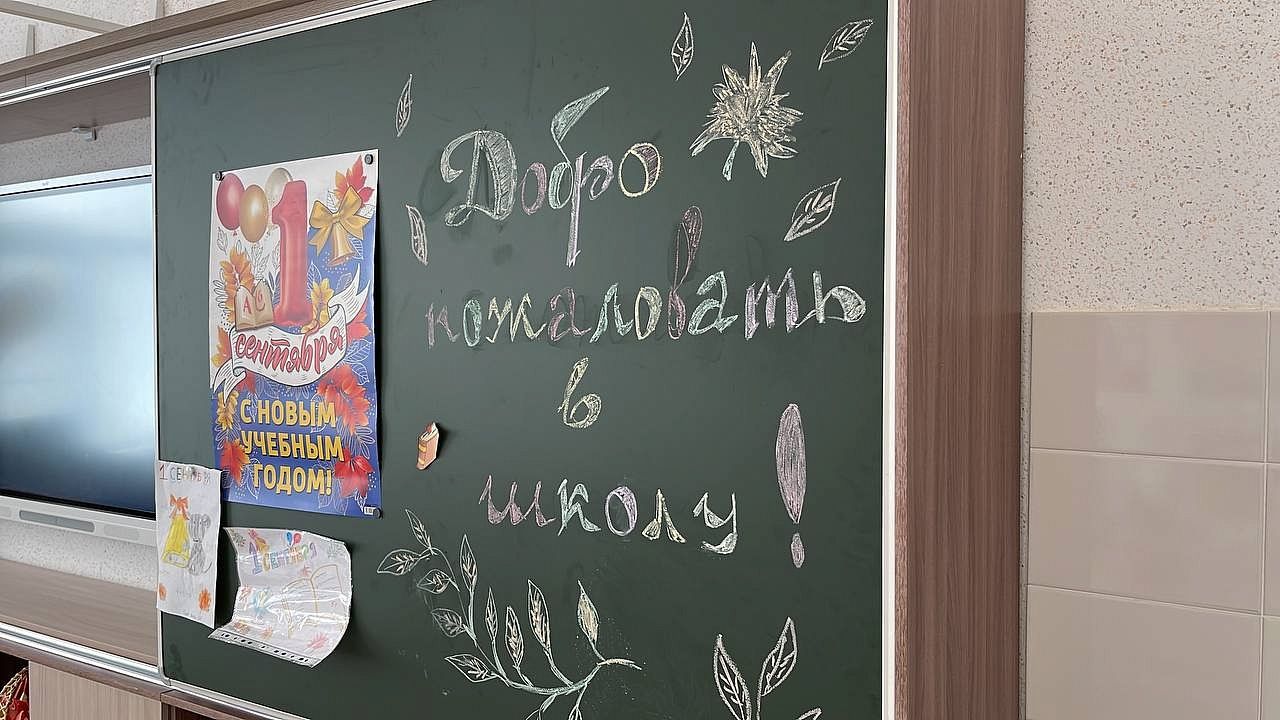 Добро
пожаловать
в
школу!
1
АБ
сентября
С НОВЫМ
УЧЕБНЫМ
ГОДОМ!
1 СЕНТЯБРЯ
1 сентября